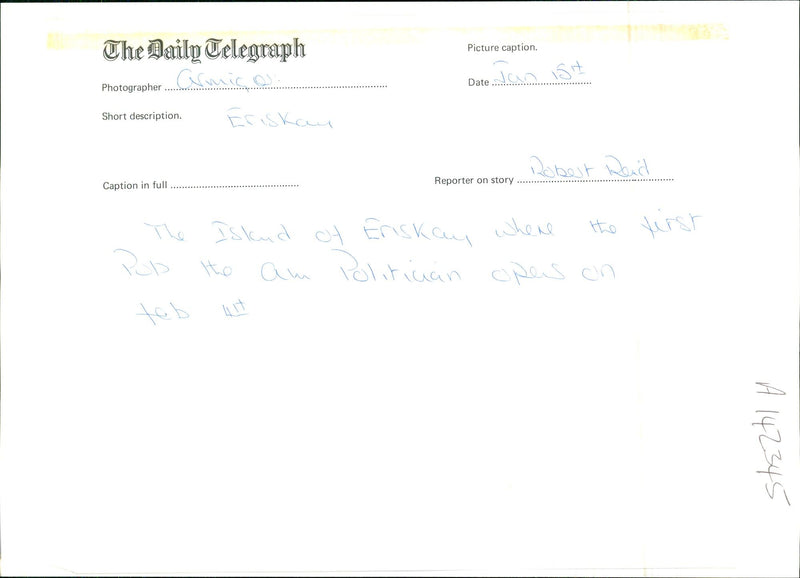 The Daily Telegraph
Picture caption.
Photographer
Date Jan 15th
Short description. Eriskay
Reporter on story Robert Reid
Caption in full
The Island of Eriskay where the first
Pub the Am Politician opens on
feb 4th
A 14234S